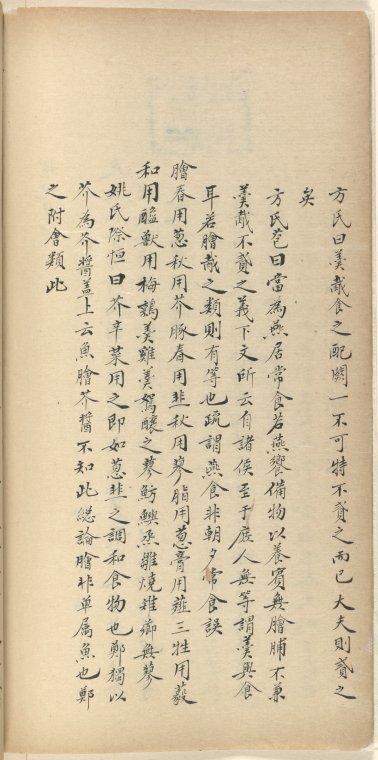 方氏曰羮胾食之配闕一不可特不貳之而已大夫則貳之
矣
方氏苞曰當為燕居常食若燕饗備物以養賓無膾脯不兼
羮胾不貳之義下文所云自諸侯至于庶人無等謂羮與食
耳若膾胾之類則有等也疏謂燕食非朝夕常食誤
膾春用葱秋用芥豚春用韭秋用蓼脂用葱膏用薤三牲用藙
和用醯獸用梅鶉羮雞羮鴽釀之蓼魴鱮烝雛燒雉薌無蓼
姚氏際恒曰芥辛菜用之即如葱韭之調和食物也鄭獨以
芥為芥醬盖上云魚膾芥醬不知此緫論膾非單属魚也鄭
之附會類此